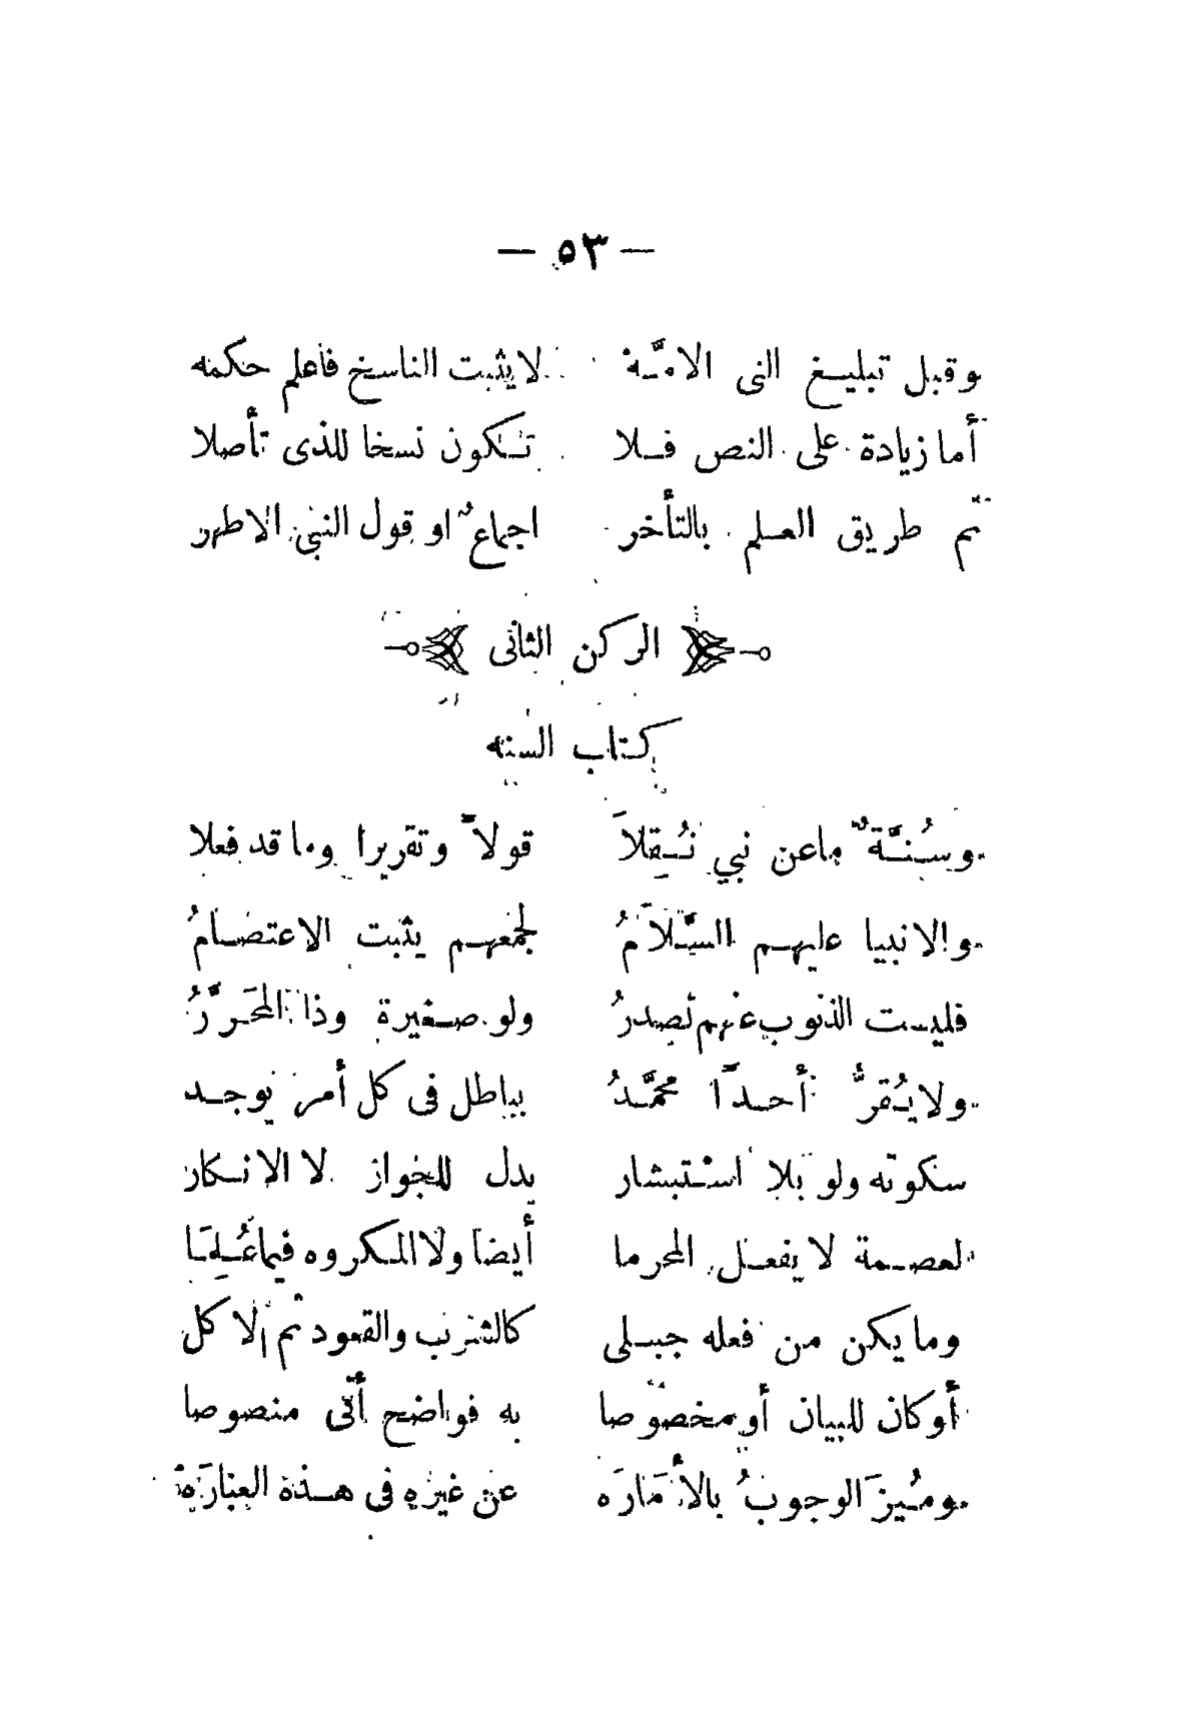 — ٥٣ —
وقبل تبليغ النبى الامَّة لا يثبت الناسخ فاعلم حكمه
أما زيادة على النص فلا تكون نسخا للذى تأصلا
ثم طريق العلم بالتأخر اجماعٌ او قول النبى الاطهر
الركن الثانى
كتاب السنه
وسُنَّةٌ ماعن نبي نُقِلاَ قولاً وتقريرا وما قد فعلا
والانبيا عليهم السَّلاَمُ لجمعهم يثبت الاعتصامُ
فليست الذنوب عنهم تصدرُ ولو صغيرة وذا المحَرَّرُ
ولا يُقرُّ أحداً محمَّدُ بباطل فى كل أمر يوجد
سكوته ولو بلا استبشار يدل للجواز لا الانكار
لعصمة لا يفعل المحرما أيضا ولا المكروه فيما عُلِمَا
وما يكن من فعله جبلى كالشرب والقعود ثم الاكل
أوكان للبيان أو مخصوصا به فواضح أتى منصوصا
ومُيزَ الوجوبُ بالأمَارَه عن غيره فى هذه العبارَه